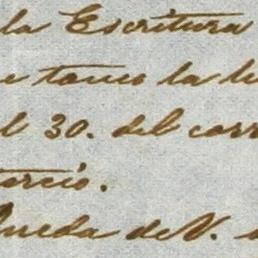 la Escritura
tomo la
30. del corr
tercio.
queda de V.